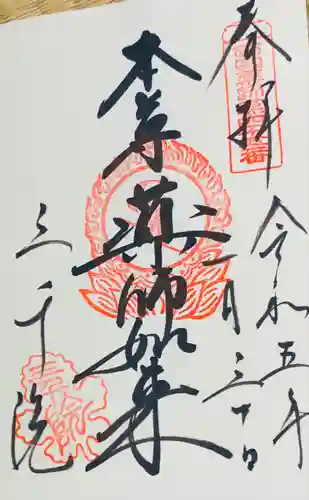 奉拝
令和五年
月三十日
本尊
薬師如来
三千院